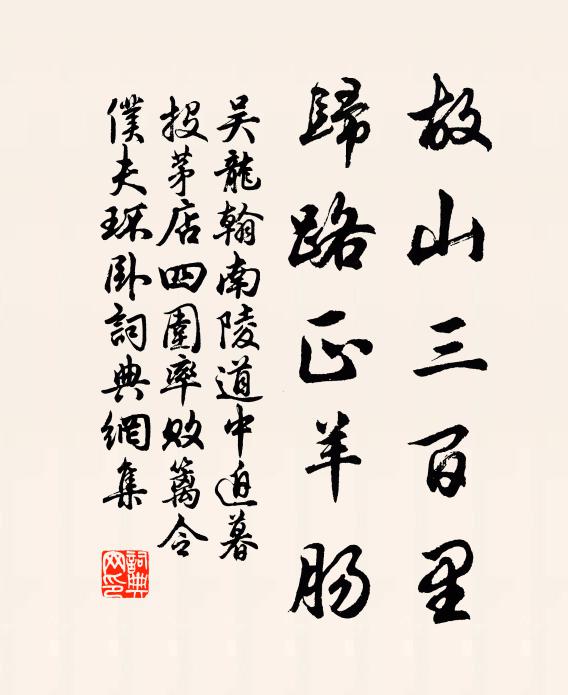 故山三百里
歸路正羊腸
吴龍翰南陵道中迫暮
投茅店四圍率敗籬令
僕夫環卧詞典網集
詞典
网印